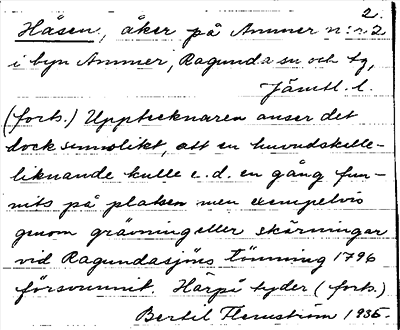 2.
Håsen, åker på Ammer n:r 2
i byn Ammer, Ragunda sn och tg,
Jämtl. l.
(forts.) Upptecknaren anser det
dock sannolikt, att en huvudskalle-
liknande kulle e.d. en gång fun-
nits på platsen men exempelvis
genom grävning eller skärningar
vid Ragundasjöns tömning 1796
försvunnit. Härpå tyder (forts.)
Bertil Flemström 1935.